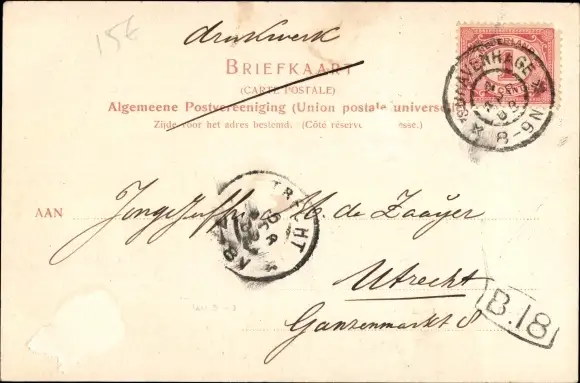 15€
drukwerk
BRIEFKAART
(CARTE POSTALE)
Algemeene Postvereeniging (Union postale universe
Zijde voor het adres bestemd. (Côté réservé esse.)
NEDERLAND
'S-GRAVENHAGE
8-9N
AAN Jongejuffr. H. de Zaaijer
UTRECHT
Utrecht
Ganzenmarkt 8
B.18